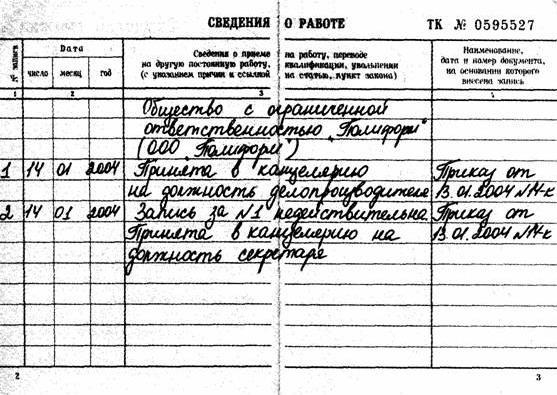 СВЕДЕНИЯ О РАБОТЕ ТК № 0595527
№ записи
Дата
число месяц год
Сведения о приеме на работу, переводе
на другую постоянную работу, квалификации, увольнении
(с указанием причин и ссылкой на статью, пункт закона)
Наименование,
дата и номер документа,
на основании которого
внесена запись
1 2 3 4
Общество с ограниченной
ответственностью „Полиформ"
(ООО „Полиформ")
1 14 01 2004 Принята в канцелярию Приказ от
на должность делопроизводителя 13.01.2004 №14-к
2 14 01 2004 Запись за №1 недействительна Приказ от
Принята в канцелярию на 13.01.2004 №14-к
должность секретаря
2 3